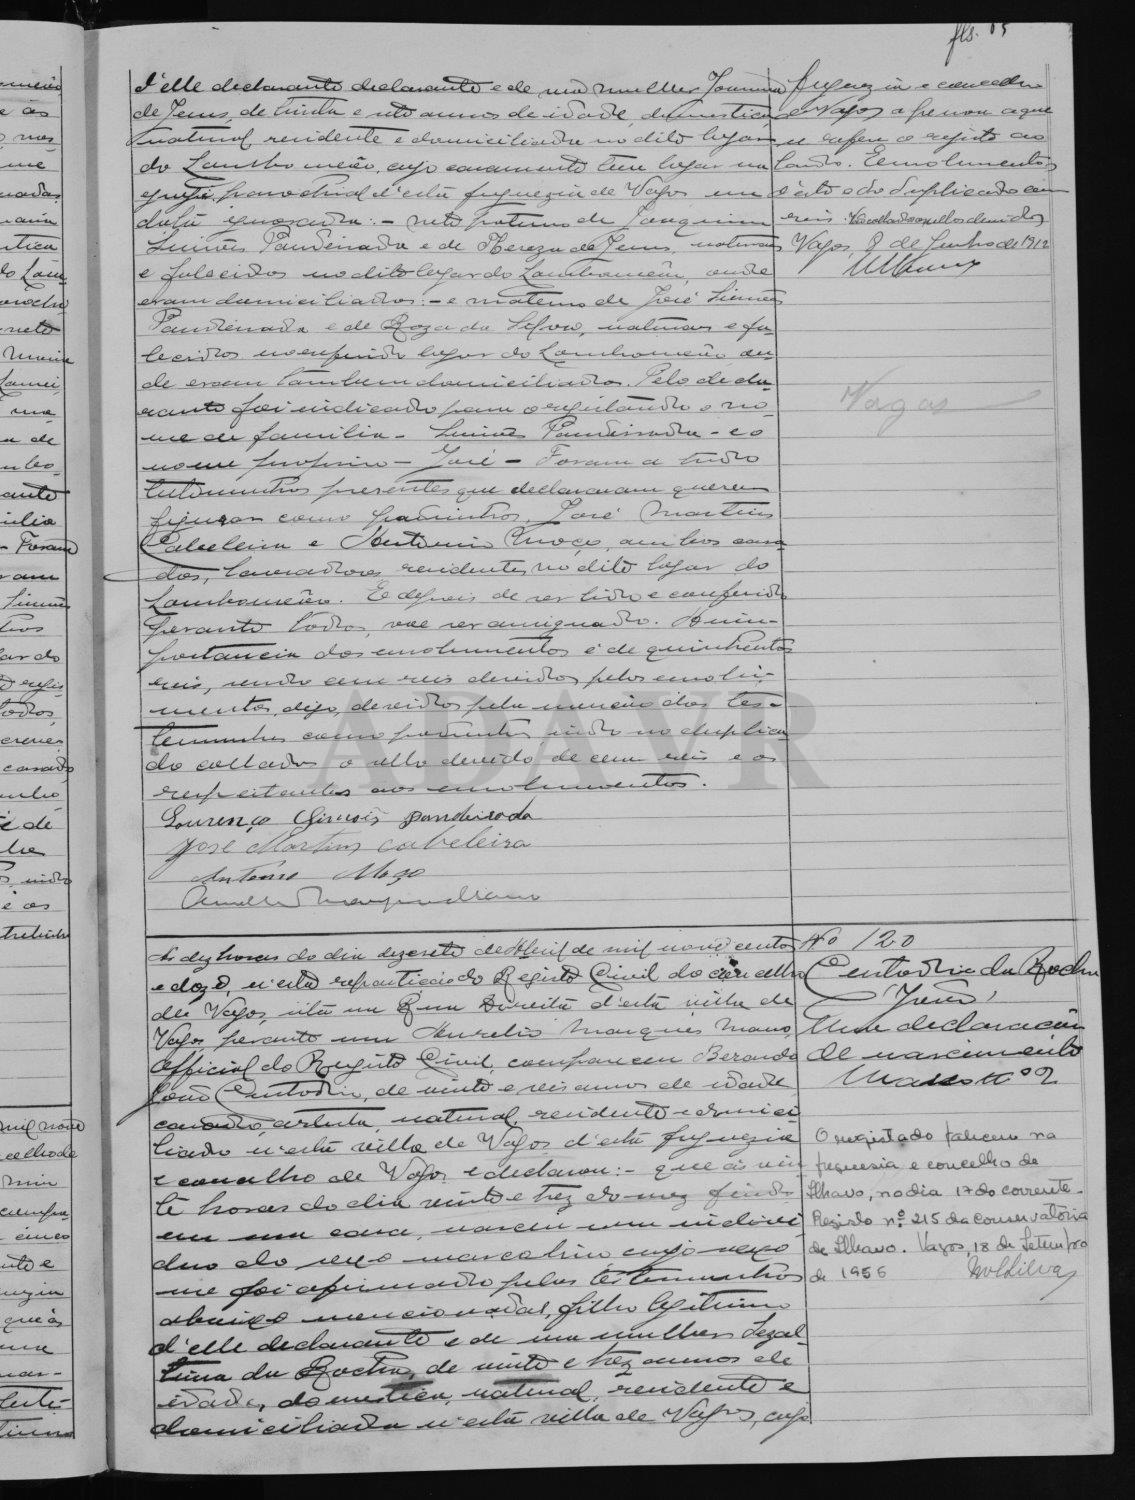 fls. 65
d'elle declarante declarante e de sua mulher Joanna
de Jesus, de trinta e oito annos de idade, domestica,
natural, residente e domiciliada no dito logar
do Lombomeão, cujo casamento teve logar na
egreja parochial d'esta freguezia de Vagos em
data ignorada:- neto paterno de Joaquim
Simões Pandeirada e de Thereza de Jesus, naturaes
e falecidos no dito logar do Lombomeão, onde
eram domiciliados:- e materno de José Simões
Pandeirada e de Roza da Silva, naturaes e fa-
lecidos no referido logar do Lombomeão, on-
de eram tambem domiciliados. Pelo decla-
rante foi indicado para o registando o no-
me de familia - Simões Pandeirada - e o
nome proprio - José - Foram a tudo
testemunhas presentes que declararam querem
figurar como padrinhos, José Martins
Cabeleira e Antonio Moço, ambos casa-
dos, lavradores residentes no dito logar do
Lombomeão. E depois de ser lido e conferido
perante todos, vae ser assignado. A im-
portancia dos emolumentos é de quinhentos
reis, sendo cem reis devidos pelos emolu-
mentos, digo, devidos pela menção das tes-
temunhas como padrinhos, indo no duplica-
do collados o sello devido de cem reis e os
respeitantes aos emolumentos.
Lourenço Simõis Pandeirada
José Martins cabeleira
Antonio Moço
freguezia e concelho
de Vagos a pessoa a que
se refere o registo ao
lado. Emolumentos
d'este e do duplicado cem
reis.
Vagos, 8 de Junho de 1912
Vagos
Ás dez horas do dia dezesete de Abril de mil nove centos
e doze, n'esta repartição do Registo Civil do concelho
de Vagos, sita na Rua Direita d'esta villa de
Vagos, perante mim Aurelio Marques Mano,
Official do Registo Civil, compareceu Berardo
João Custodio, de vinte e seis annos de idade
casado, artista, natural, residente e domici-
liado n'esta villa de Vagos d'esta freguezia
e concelho de Vagos e declarou:- que ás vin-
te horas do dia vinte e trez do mez findo
em sua casa, nasceu um indivi-
duo do sexo masculino cujo sexo
me foi afirmado pelas testemunhas
abaixo mencionadas, filho legitimo
d'elle declarante e de sua mulher Lezal-
tina da Rocha, de vinte e trez annos de
idade, domestica, natural, residente e
domiciliada n'esta villa de Vagos, cujo
No 120
Custodio da Rocha
(João)
Uma declaração
de nascimento
Masso nº 2
O registado faleceu na
freguesia e concelho de
Ilhavo, no dia 17 do corrente.
Registo nº 215 da Conservatória
de Ilhavo. Vagos, 18 de Setembro
de 1956
ADAVR